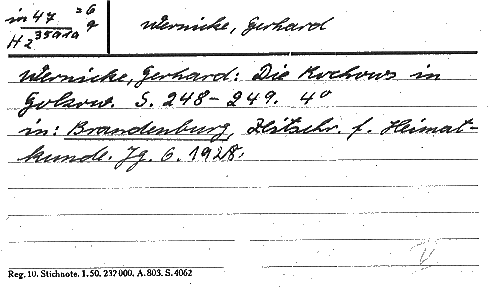 in 47 = 6
H2 35919 9
Wernicke, Gerhard
Wernicke, Gerhard: Die Rochows in
Golzow. S. 248-249. 4°
in: Brandenburg, Zeitschr. f. Heimat-
kunde. Jg. 6. 1928.
Reg. 10. Stichnote. 1. 50. 232000. A. 803. S. 4062